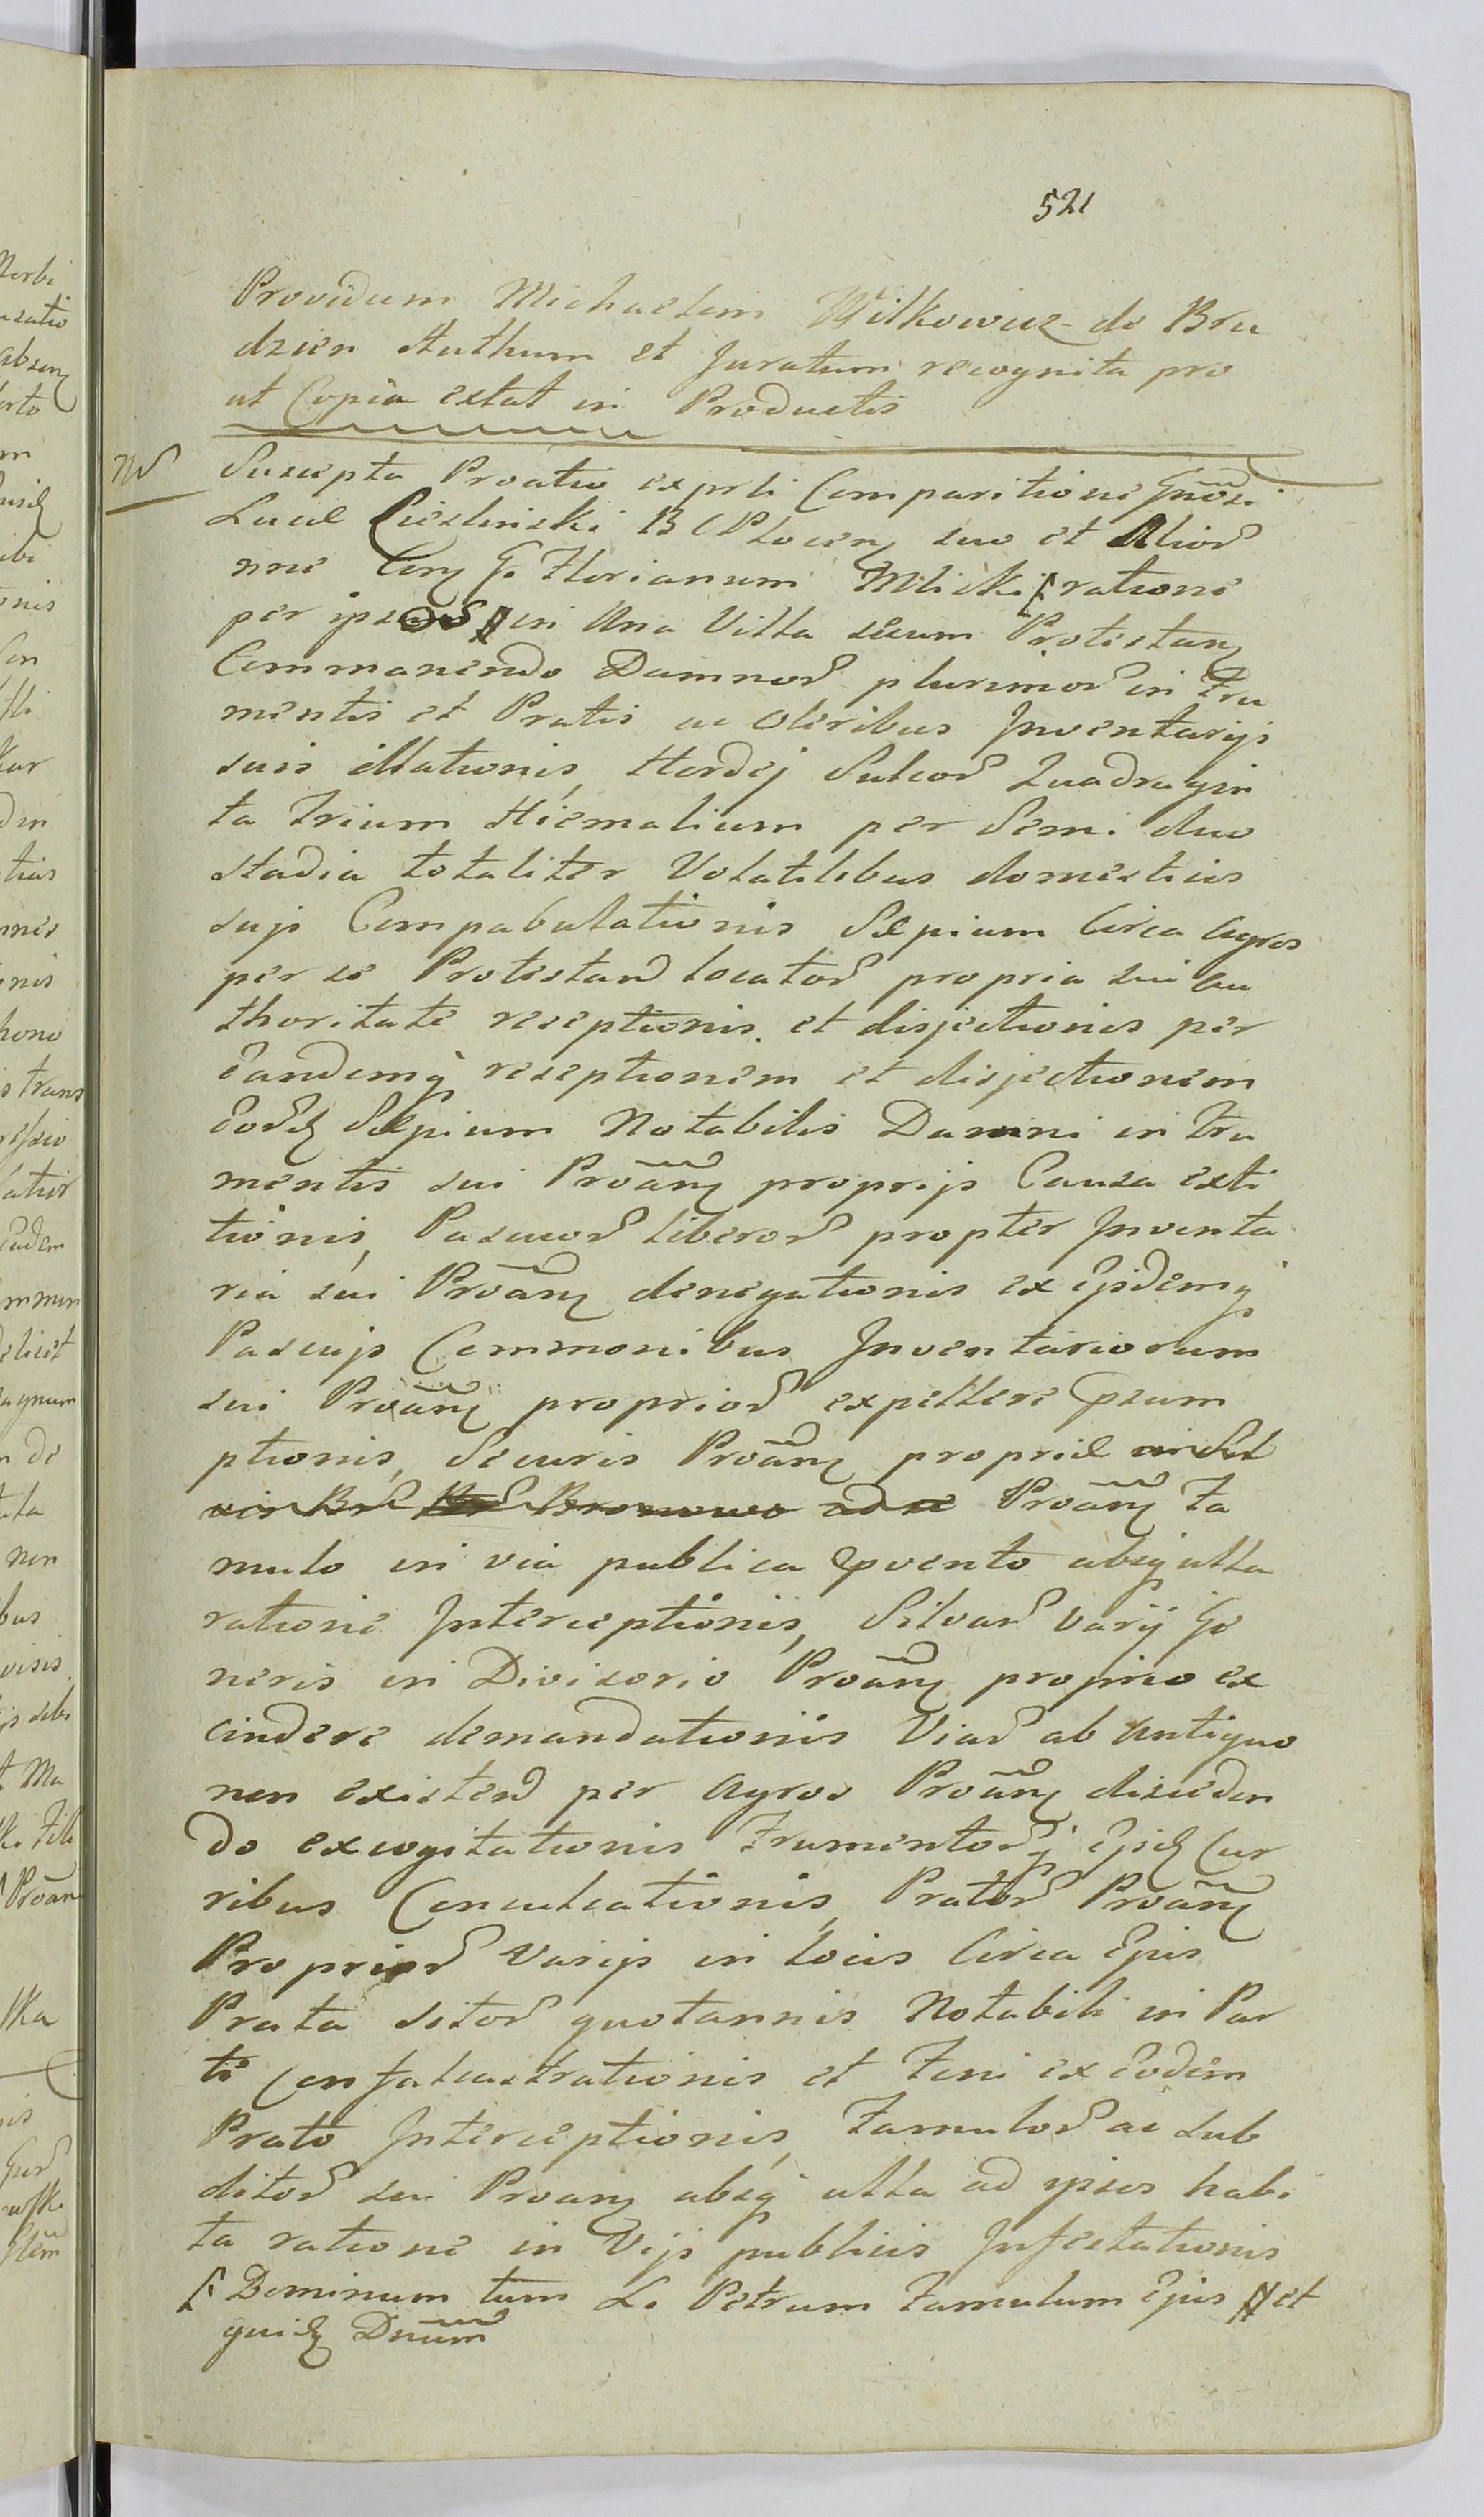 521
Providum Michaelem Witkowicz de Bru
dzien Authum et Juratum recognita pro
ut Copia extat in Productis
Suscepta Proatio ex prli Comparitione Gnosi
Lucæ Ciesliński B C Plocen suo et Alior
nne Con G. Florianum Mlicki ratione
per ipsos in Ana Villa secum Protestan
Commanendo Damnor plurimor in Fru
mentis et Pratis ac Oleribus Inventarijs
suis illationis, Hordej Sulcor Quadragin
ta Trium Hiemalium per Semi duo
stadia totaliter Volatilibus domesticis
sujs Compabulationis Sæpium Circa Agros
per se Protestand locator propria sui Au
thoritate receptionis et disjectionis per
Eandemq receptionem et disjectionem
Eord Sæpium Notabilis Damni in Fru
mentis sui Proãn proprijs Causa exti
tionis, Pascuor liberor propter Inventa
ria sui Proãn denegationis ex Ejsdemq
Pascujs Commonibus Inventariorum
sui Proãn proprior expellere Psum
ptionis, Securis Proãn propriæ
Proãn Fa
mulo in via publica Pvento absq ulla
ratione Interceptionis, Silvar Varij Ge
neris in Divisorio Proãn proprio ex
cindere demandationis Viar ab Antiquo
non existend per Agros Proãn disceden
do excogitationis Frumentorq Ejsd Cur
ribus Conculcationis, Prator Proãn
Proprior Varijs in locis Circa Ejus
Prata sitor quotannis Notabili in Par
te Confalcastrationis et Feni ex Eodem
Prato Interceptionis, Famulor ac Sub
ditor sui Proan absq ulla ad ipsos habi
ta ratione in Vijs publicis Infestationis
Dominum tum L. Petrum Famulum Ejus et
quidq Dnum